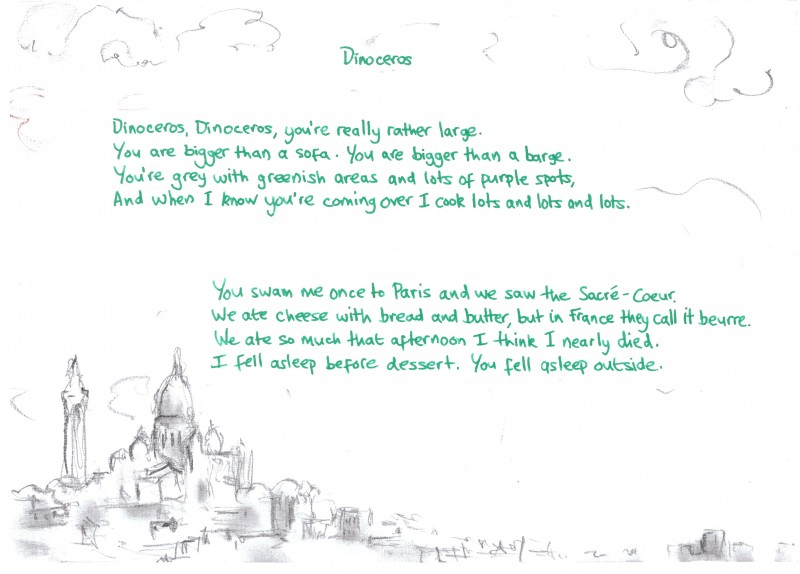 Dinoceros
Dinoceros, Dinoceros, you're really rather large.
You are bigger than a sofa. You are bigger than a barge.
You're grey with greenish areas and lots of purple spots,
And when I know you're coming over I cook lots and lots and lots.
You swam me once to Paris and we saw the Sacré-Coeur.
We ate cheese with bread and butter, but in France they call it beurre.
We ate so much that afternoon I think I nearly died.
I fell asleep before dessert. You fell asleep outside.